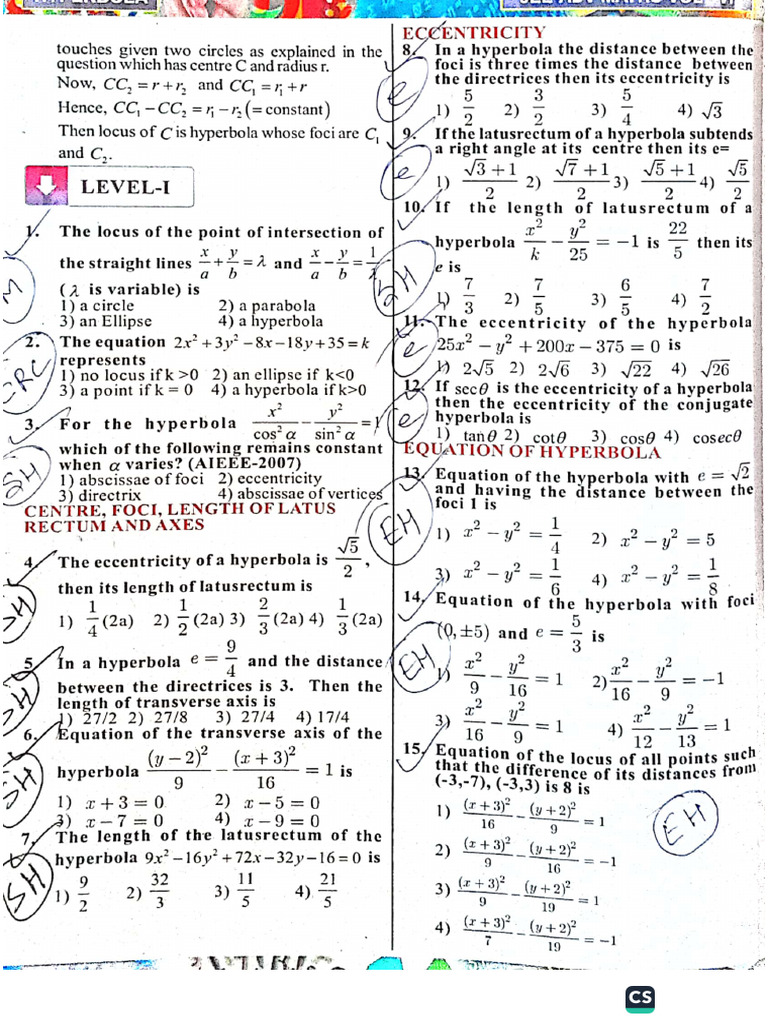 touches given two circles as explained in the
question which has centre C and radius r.
Now, CC₂ = r + r₂ and CC₁ = r₁ + r
Hence, CC₁ − CC₂ = r₁ − r₂ (= constant)
Then locus of C is hyperbola whose foci are C₁
and C₂.
LEVEL-I
1. The locus of the point of intersection of
the straight lines x/a + y/b = λ and x/a − y/b = 1/λ
(λ is variable) is
1) a circle 2) a parabola
3) an Ellipse 4) a hyperbola
2. The equation 2x² + 3y² − 8x − 18y + 35 = k
represents
1) no locus if k >0 2) an ellipse if k<0
3) a point if k = 0 4) a hyperbola if k>0
3. For the hyperbola x²/cos² α − y²/sin² α = 1
which of the following remains constant
when α varies? (AIEEE-2007)
1) abscissae of foci 2) eccentricity
3) directrix 4) abscissae of vertices
SH
CENTRE, FOCI, LENGTH OF LATUS
RECTUM AND AXES
4. The eccentricity of a hyperbola is √5/2,
then its length of latusrectum is
1) 1/4 (2a) 2) 1/2 (2a) 3) 2/3 (2a) 4) 1/3 (2a)
5. In a hyperbola e = 9/4 and the distance
between the directrices is 3. Then the
length of transverse axis is
1) 27/2 2) 27/8 3) 27/4 4) 17/4
SH
6. Equation of the transverse axis of the
hyperbola (y − 2)²/9 − (x + 3)²/16 = 1 is
1) x + 3 = 0 2) x − 5 = 0
3) x − 7 = 0 4) x − 9 = 0
SH
7. The length of the latusrectum of the
hyperbola 9x² − 16y² + 72x − 32y − 16 = 0 is
1) 9/2 2) 32/3 3) 11/5 4) 21/5
SH
ECCENTRICITY
8. In a hyperbola the distance between the
foci is three times the distance between
the directrices then its eccentricity is
1) 5/2 2) 3/2 3) 5/4 4) √3
e
9. If the latusrectum of a hyperbola subtends
a right angle at its centre then its e=
1) (√3 + 1)/2 2) (√7 + 1)/2 3) (√5 + 1)/2 4) √5/2
e
10. If the length of latusrectum of a
hyperbola x²/k − y²/25 = −1 is 22/5 then its
e is
1) 7/3 2) 7/5 3) 6/5 4) 7/2
SH
11. The eccentricity of the hyperbola
25x² − y² + 200x − 375 = 0 is
1) 2√5 2) 2√6 3) √22 4) √26
e
12. If secθ is the eccentricity of a hyperbola
then the eccentricity of the conjugate
hyperbola is
1) tanθ 2) cotθ 3) cosθ 4) cosecθ
e
EQUATION OF HYPERBOLA
13. Equation of the hyperbola with e = √2
and having the distance between the
foci 1 is
1) x² − y² = 1/4 2) x² − y² = 5
3) x² − y² = 1/6 4) x² − y² = 1/8
EH
14. Equation of the hyperbola with foci
(0, ±5) and e = 5/3 is
1) x²/9 − y²/16 = 1 2) x²/16 − y²/9 = −1
3) x²/16 − y²/9 = 1 4) x²/12 − y²/13 = 1
EH
15. Equation of the locus of all points such
that the difference of its distances from
(-3,-7), (-3,3) is 8 is
1) (x + 3)²/16 − (y + 2)²/9 = 1
2) (x + 3)²/9 − (y + 2)²/16 = −1
3) (x + 3)²/9 − (y + 2)²/19 = 1
4) (x + 3)²/7 − (y + 2)²/19 = −1
EH
CS